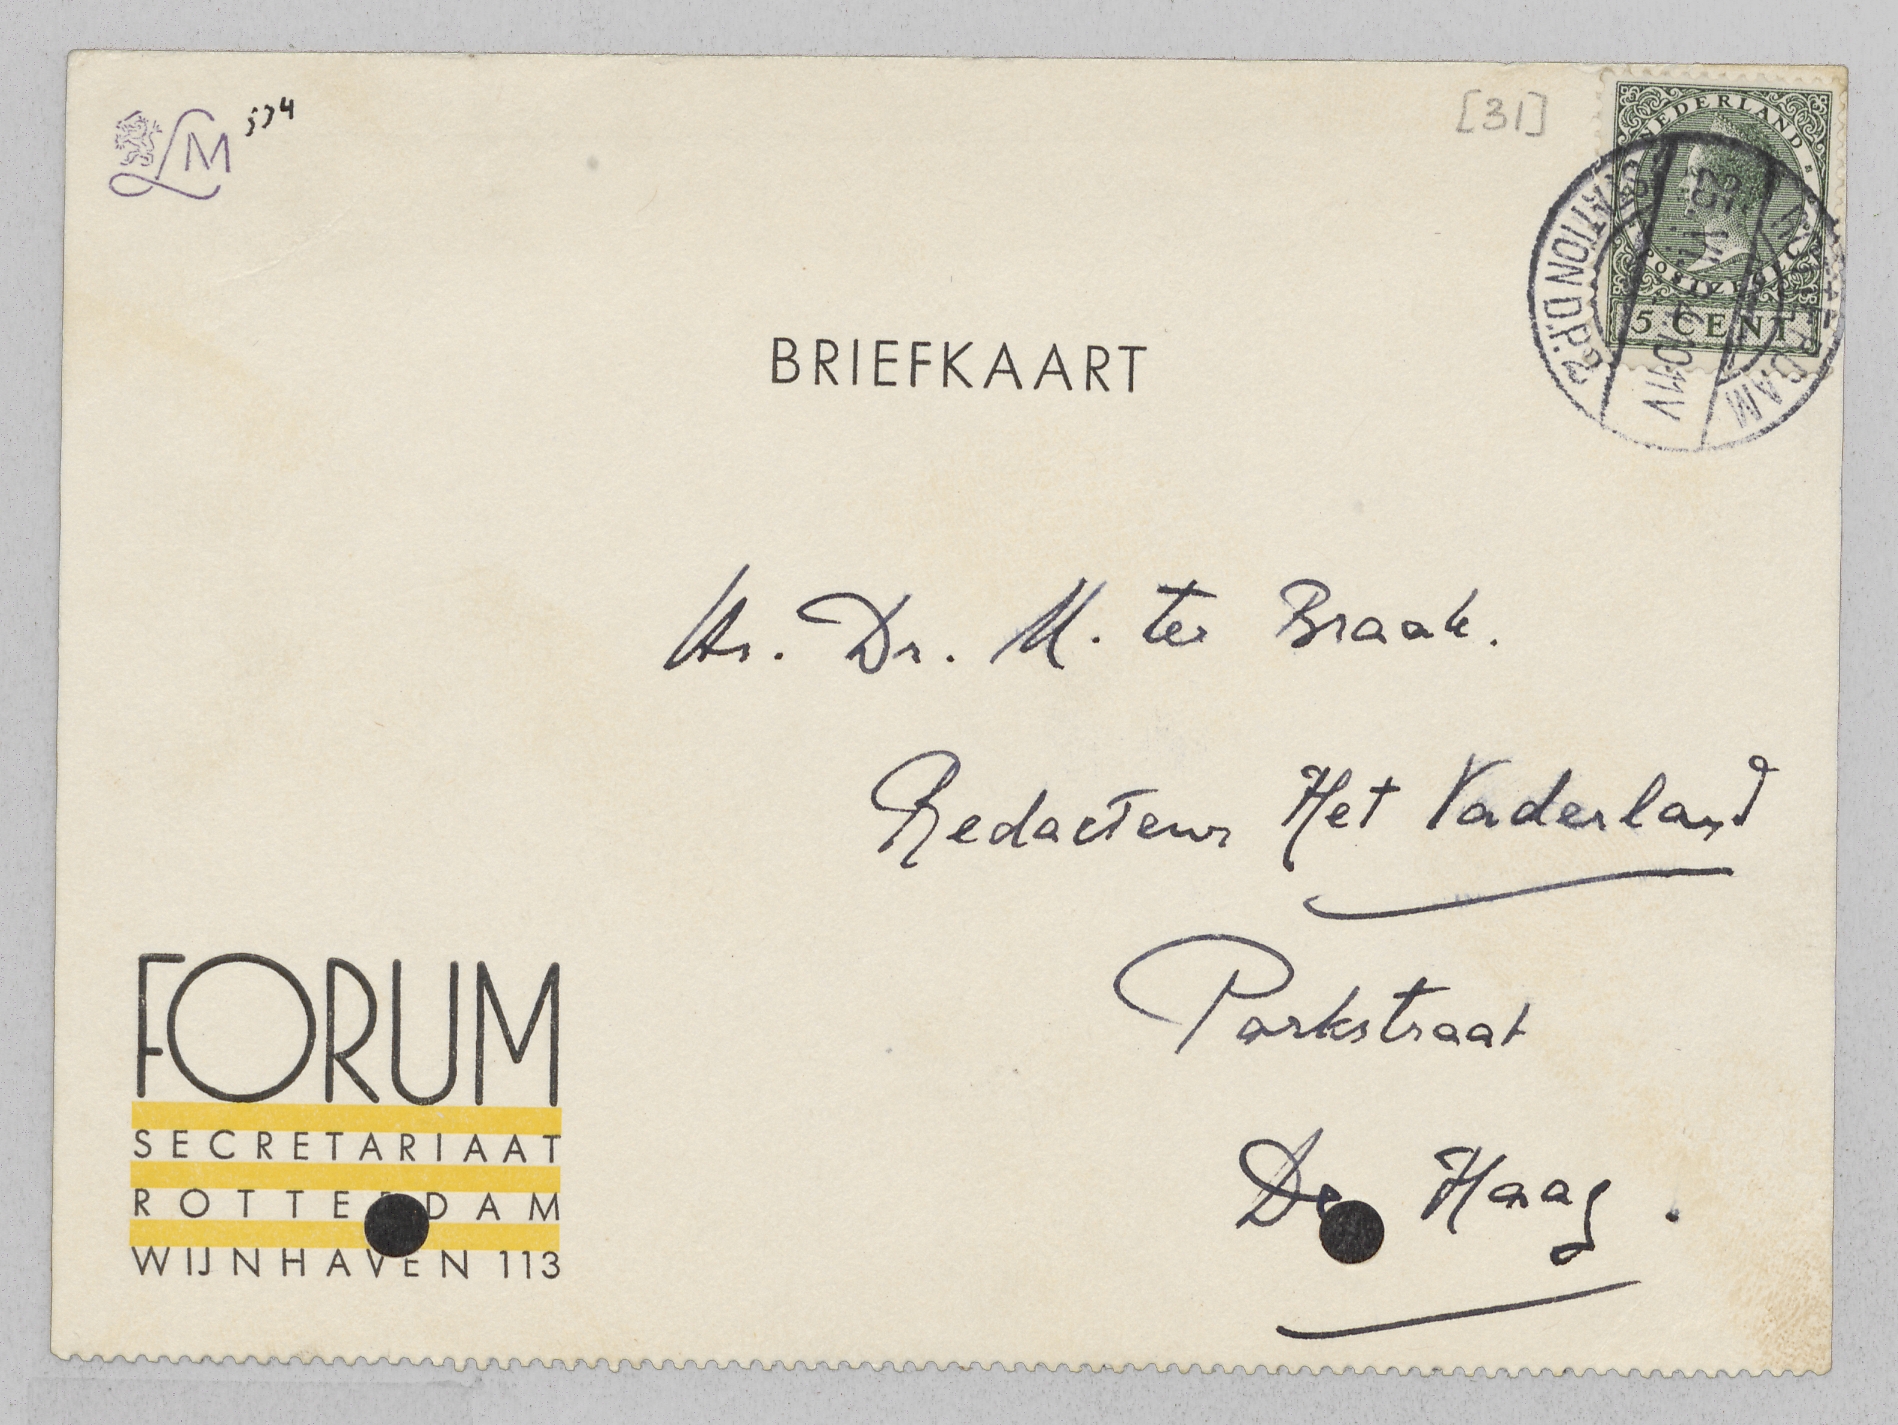 LM 574
[31]
NEDERLAND
POSTZEGEL
5 CENT
STATION D.P.
BRIEFKAART
Hr. Dr. M. ter Braak.
Redacteur Het Vaderland
Parkstraat
De Haag.
FORUM
SECRETARIAAT
ROTTERDAM
WIJNHAVEN 113